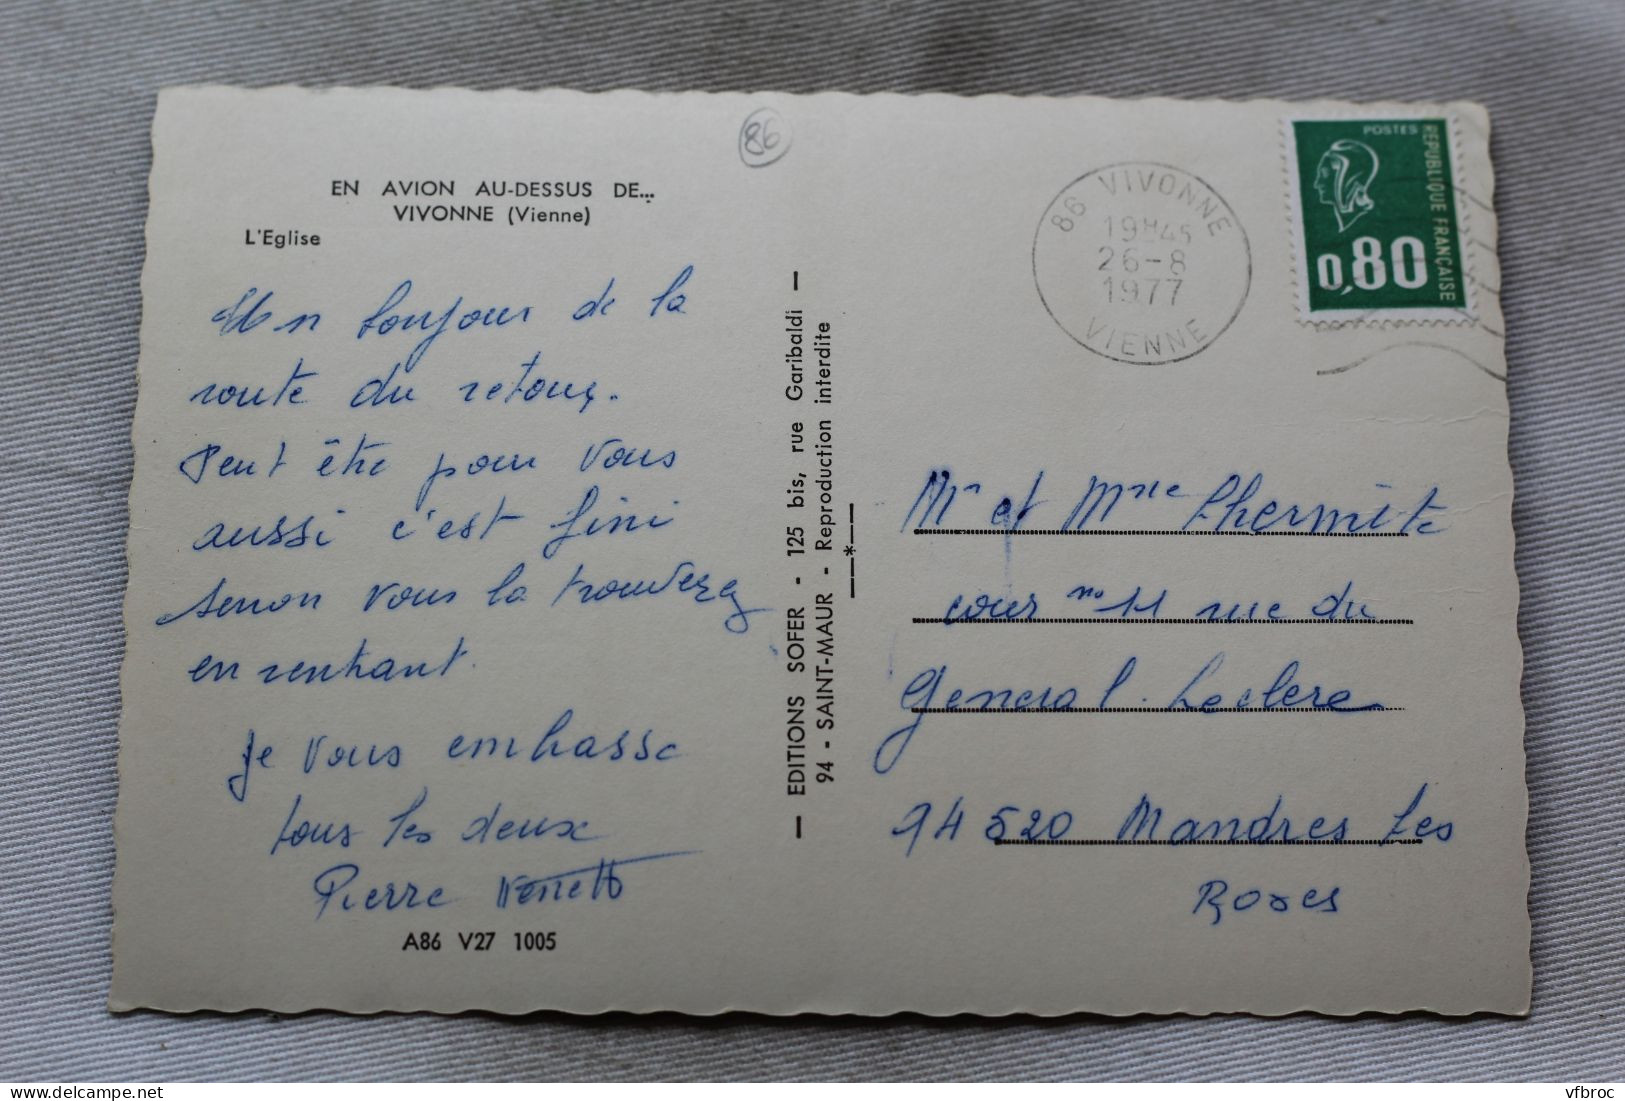 86
EN AVION AU-DESSUS DE...
VIVONNE (Vienne)
L'Eglise
toujour de la
route du retour.
Peut être pour vous
aussi c'est fini
senon vous la trouverez
en rentrant.
Je vous embrasse
tous les deux
Pierre
A86 V27 1005
— EDITIONS SOFER - 125 bis, rue Garibaldi —
94 - SAINT-MAUR - Reproduction interdite
——*——
86 VIVONNE
19H45
26-8
1977
VIENNE
POSTES
REPUBLIQUE FRANÇAISE
0,80
Mr et Mme Lhermite
cour no 11 rue du
General Leclere
94 520 Mandres Les
Roses
vfbroc